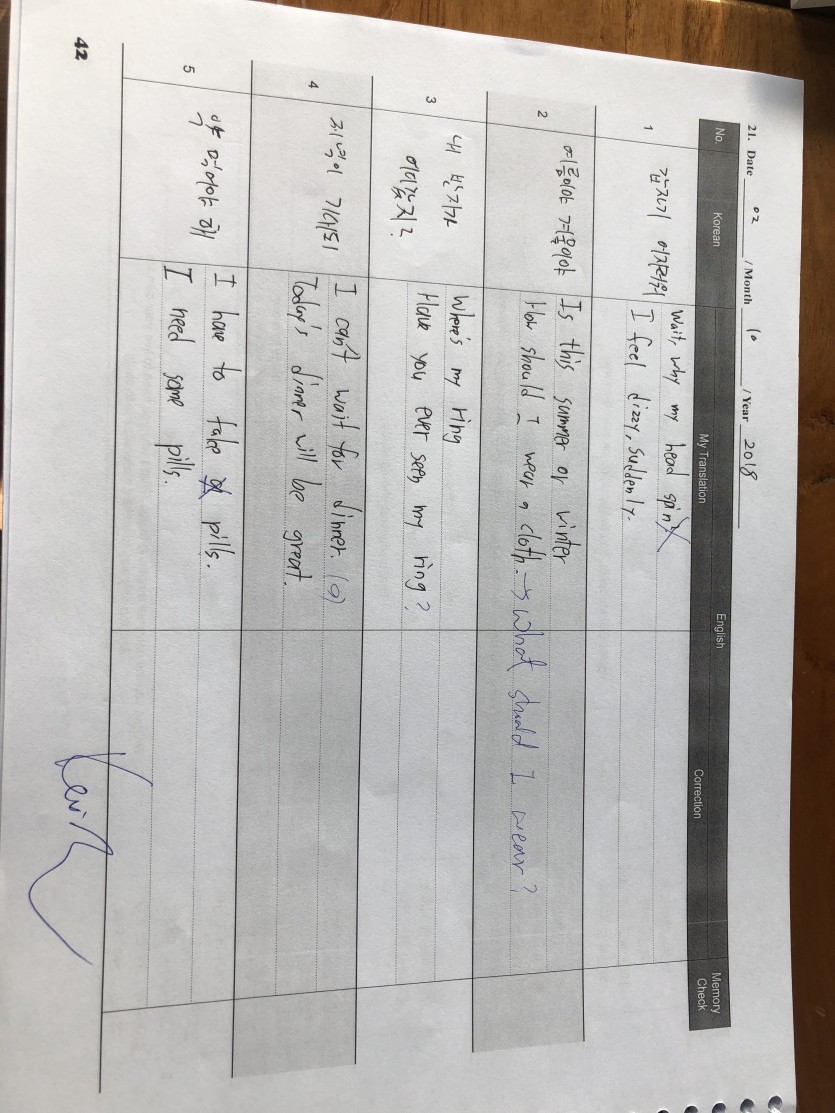 21. Date 02 / Month 10 / Year 2018
No. Korean English
My Translation Correction Memory Check
1 갑자기 어지러워
Wait, why my head spin
I feel dizzy, suddenly.
2 여름이야 겨울이야
Is this summer or winter
How should I wear a cloth. → What should I wear?
3 내 반지가
어디갔지?
Where's my ring
Have you ever seen my ring?
4 저녁이 기대돼
I can't wait for dinner. (o)
Today's dinner will be great.
5 약 먹어야 해
I have to take pills.
I need some pills.
Kevin
42